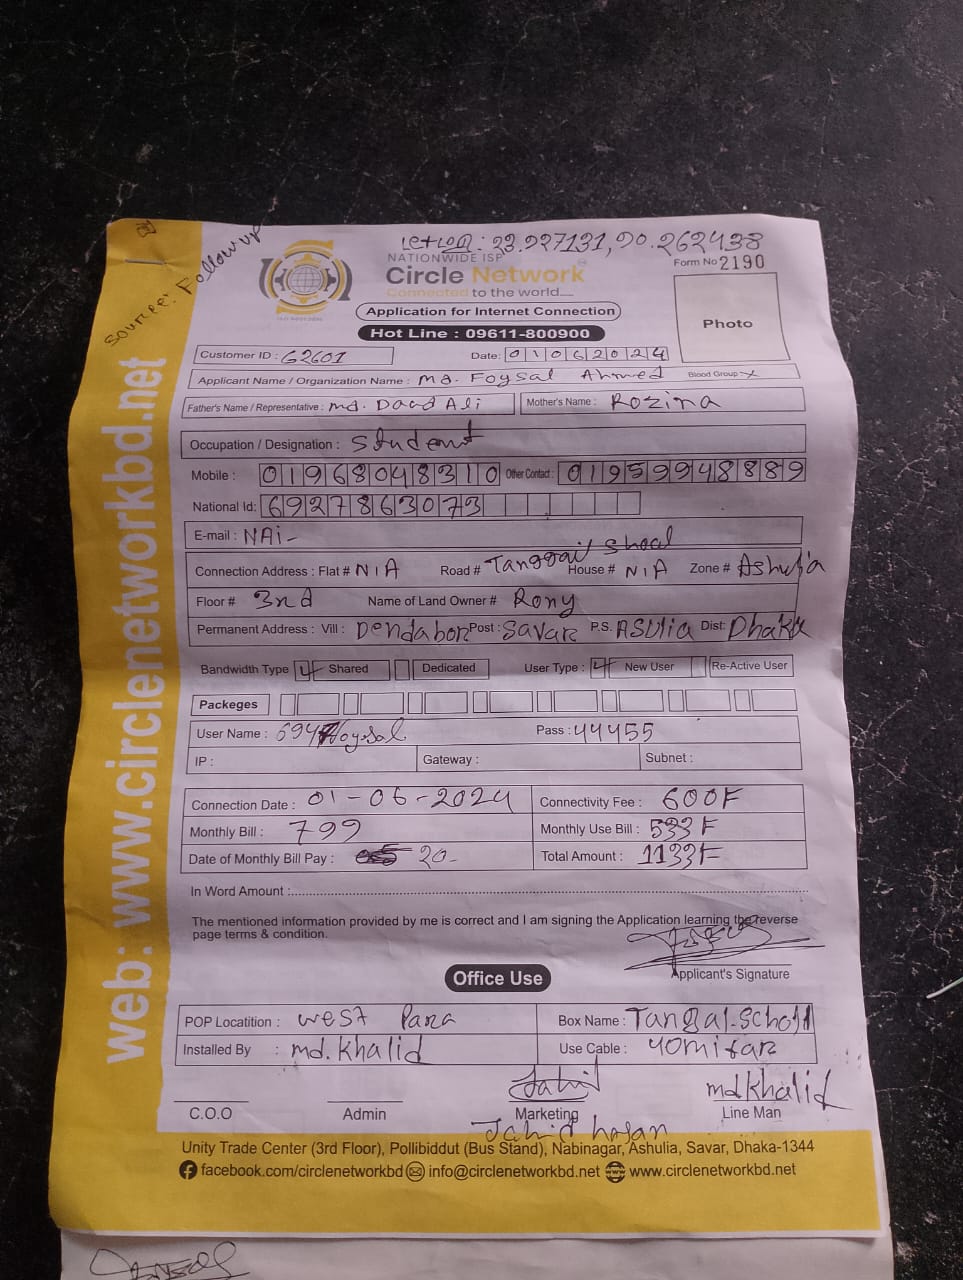 Let+Lon: 23.927131,90.262438
Source: Followup
NATIONWIDE ISP
Circle Network
Connected to the world.....
Form No 2190
Application for Internet Connection
Hot Line : 09611-800900
Photo
Customer ID : 62601 Date: 01062024
Applicant Name / Organization Name : Md. Foysal Ahmed Blood Group
Father's Name / Representative : md. Daud Ali Mother's Name : Rozina
Occupation / Designation : student
Mobile : 01968048310 Other Contact : 01959948889
National Id: 6927863073
E-mail : NAi-
Connection Address : Flat # N/A Road # Tanggail Shool House # N/A Zone # Ashulia
Floor # 3nd Name of Land Owner # Rony
Permanent Address : Vill : Dendabor Post : Savar P.S. ASUlia Dist: Dhaka
Bandwidth Type Shared Dedicated User Type : New User Re-Active User
Packeges
User Name : Pass : 44455
IP : Gateway : Subnet :
Connection Date : 01-06-2024 Connectivity Fee : 600F
Monthly Bill : 799 Monthly Use Bill : 533F
Date of Monthly Bill Pay : 20- Total Amount : 1133F
In Word Amount :
The mentioned information provided by me is correct and I am signing the Application learning the reverse
page terms & condition.
Applicant's Signature
Office Use
POP Locatition : west Para Box Name : Tangal-School
Installed By : md. Khalid Use Cable : 40mitar
Jahid md khalid
C.O.O Admin Marketing Line Man
Jahid hasan
Unity Trade Center (3rd Floor), Pollibiddut (Bus Stand), Nabinagar, Ashulia, Savar, Dhaka-1344
facebook.com/circlenetworkbd info@circlenetworkbd.net www.circlenetworkbd.net
web: www.circlenetworkbd.net